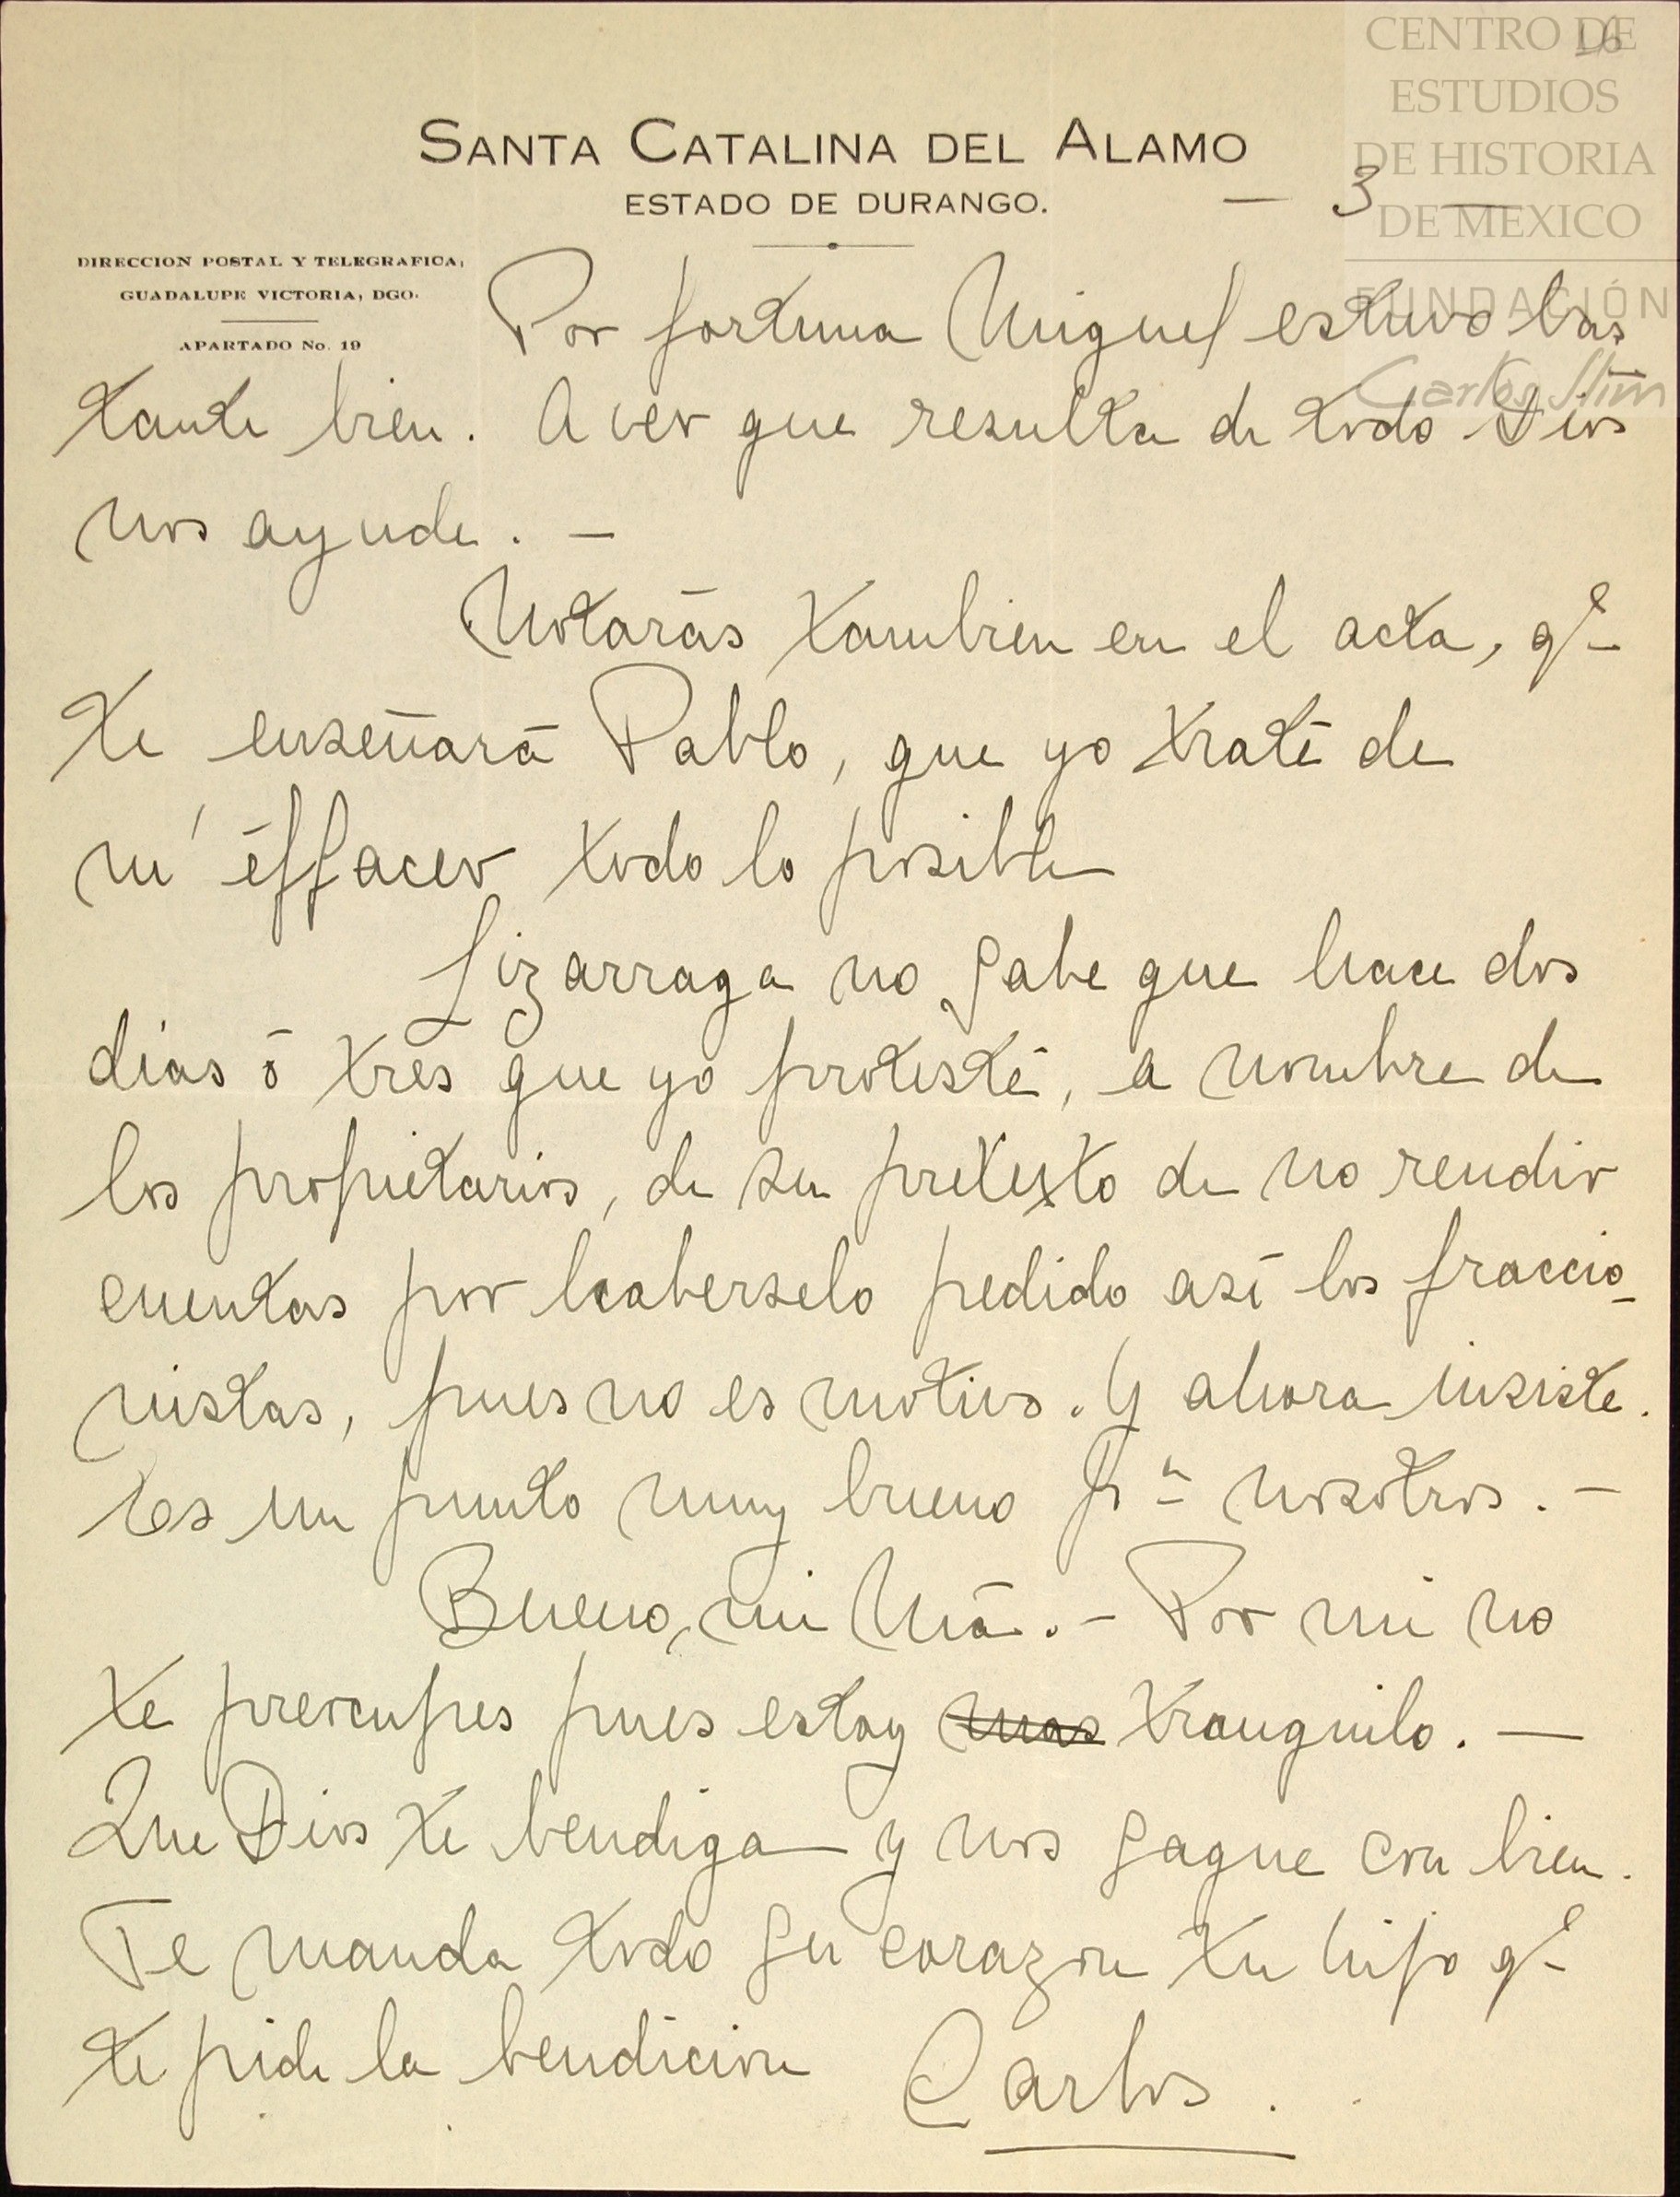 CENTRO DE
ESTUDIOS
DE HISTORIA
DE MEXICO
FUNDACIÓN
Carlos Slim
16
SANTA CATALINA DEL ALAMO
ESTADO DE DURANGO.
— 3 —
DIRECCION POSTAL Y TELEGRAFICA,
GUADALUPE VICTORIA, DGO.
APARTADO No. 19
Por fortuna Miguel estuvo bas
tante bien. A ver que resulta de todo Dios
nos ayude. —
Notarás tambien en el acta, qe
te enseñará Pablo, que yo traté de
m'éffacer todo lo posible
Lizarraga no sabe que hace dos
días ó tres que yo protesté, a nombre de
los propietarios, de su pretexto de no rendir
cuentas por haberselo pedido así los fraccio-
nistas, pues no es motivo. Y ahora insiste.
Es un punto muy bueno pa nosotros. —
Bueno, mi Má. — Por mi no
te preocupes pues estoy mas tranquilo. —
Que Dios te bendiga y nos saque con bien.
Te manda todo su corazon tu hijo qe
te pide la bendicion Carlos.